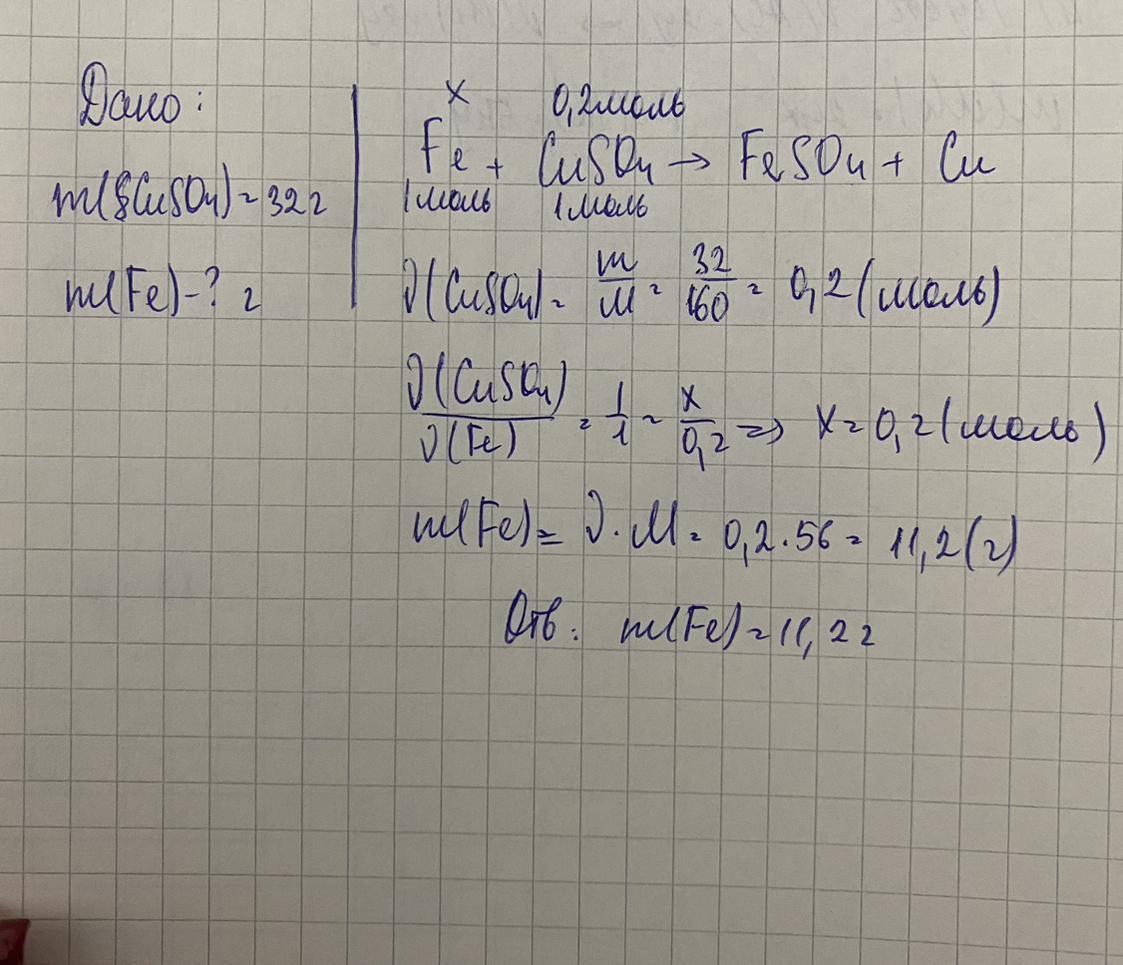 Дано:
m(CuSO4) = 32 г
m(Fe) - ? г
x 0,2 моль
Fe + CuSO4 → FeSO4 + Cu
1 моль 1 моль
ν(CuSO4) = m/M = 32/160 = 0,2 (моль)
ν(CuSO4)/ν(Fe) = 1/1 = x/0,2 => x = 0,2 (моль)
m(Fe) = ν · M = 0,2 · 56 = 11,2 (г)
Отв: m(Fe) = 11,2 г